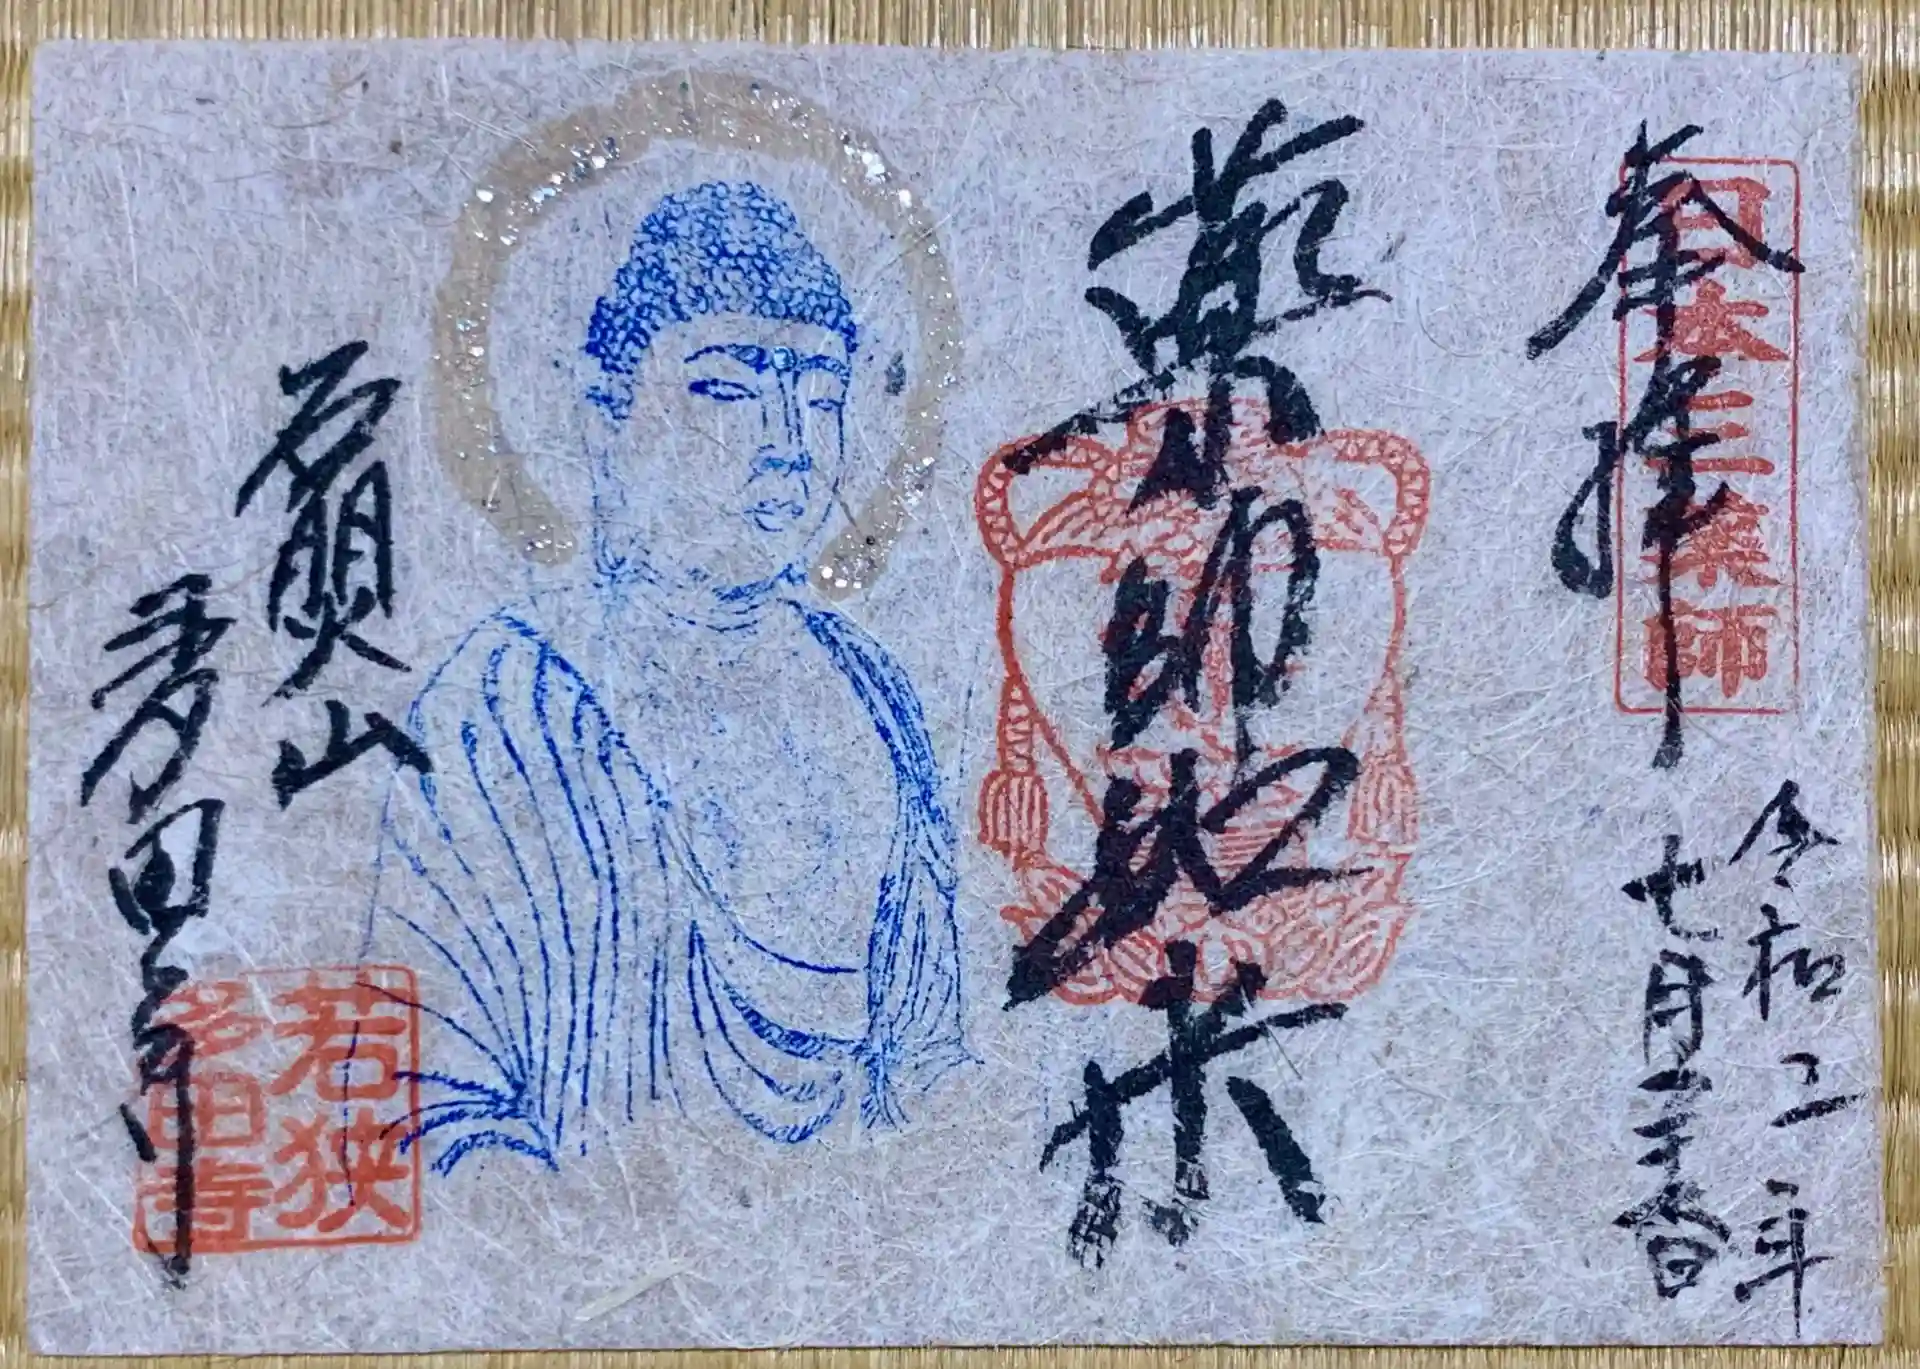 奉拝
日本三薬師
令和二年
七月二十六日
薬師如来
石照山
多田寺
若狭
多田寺